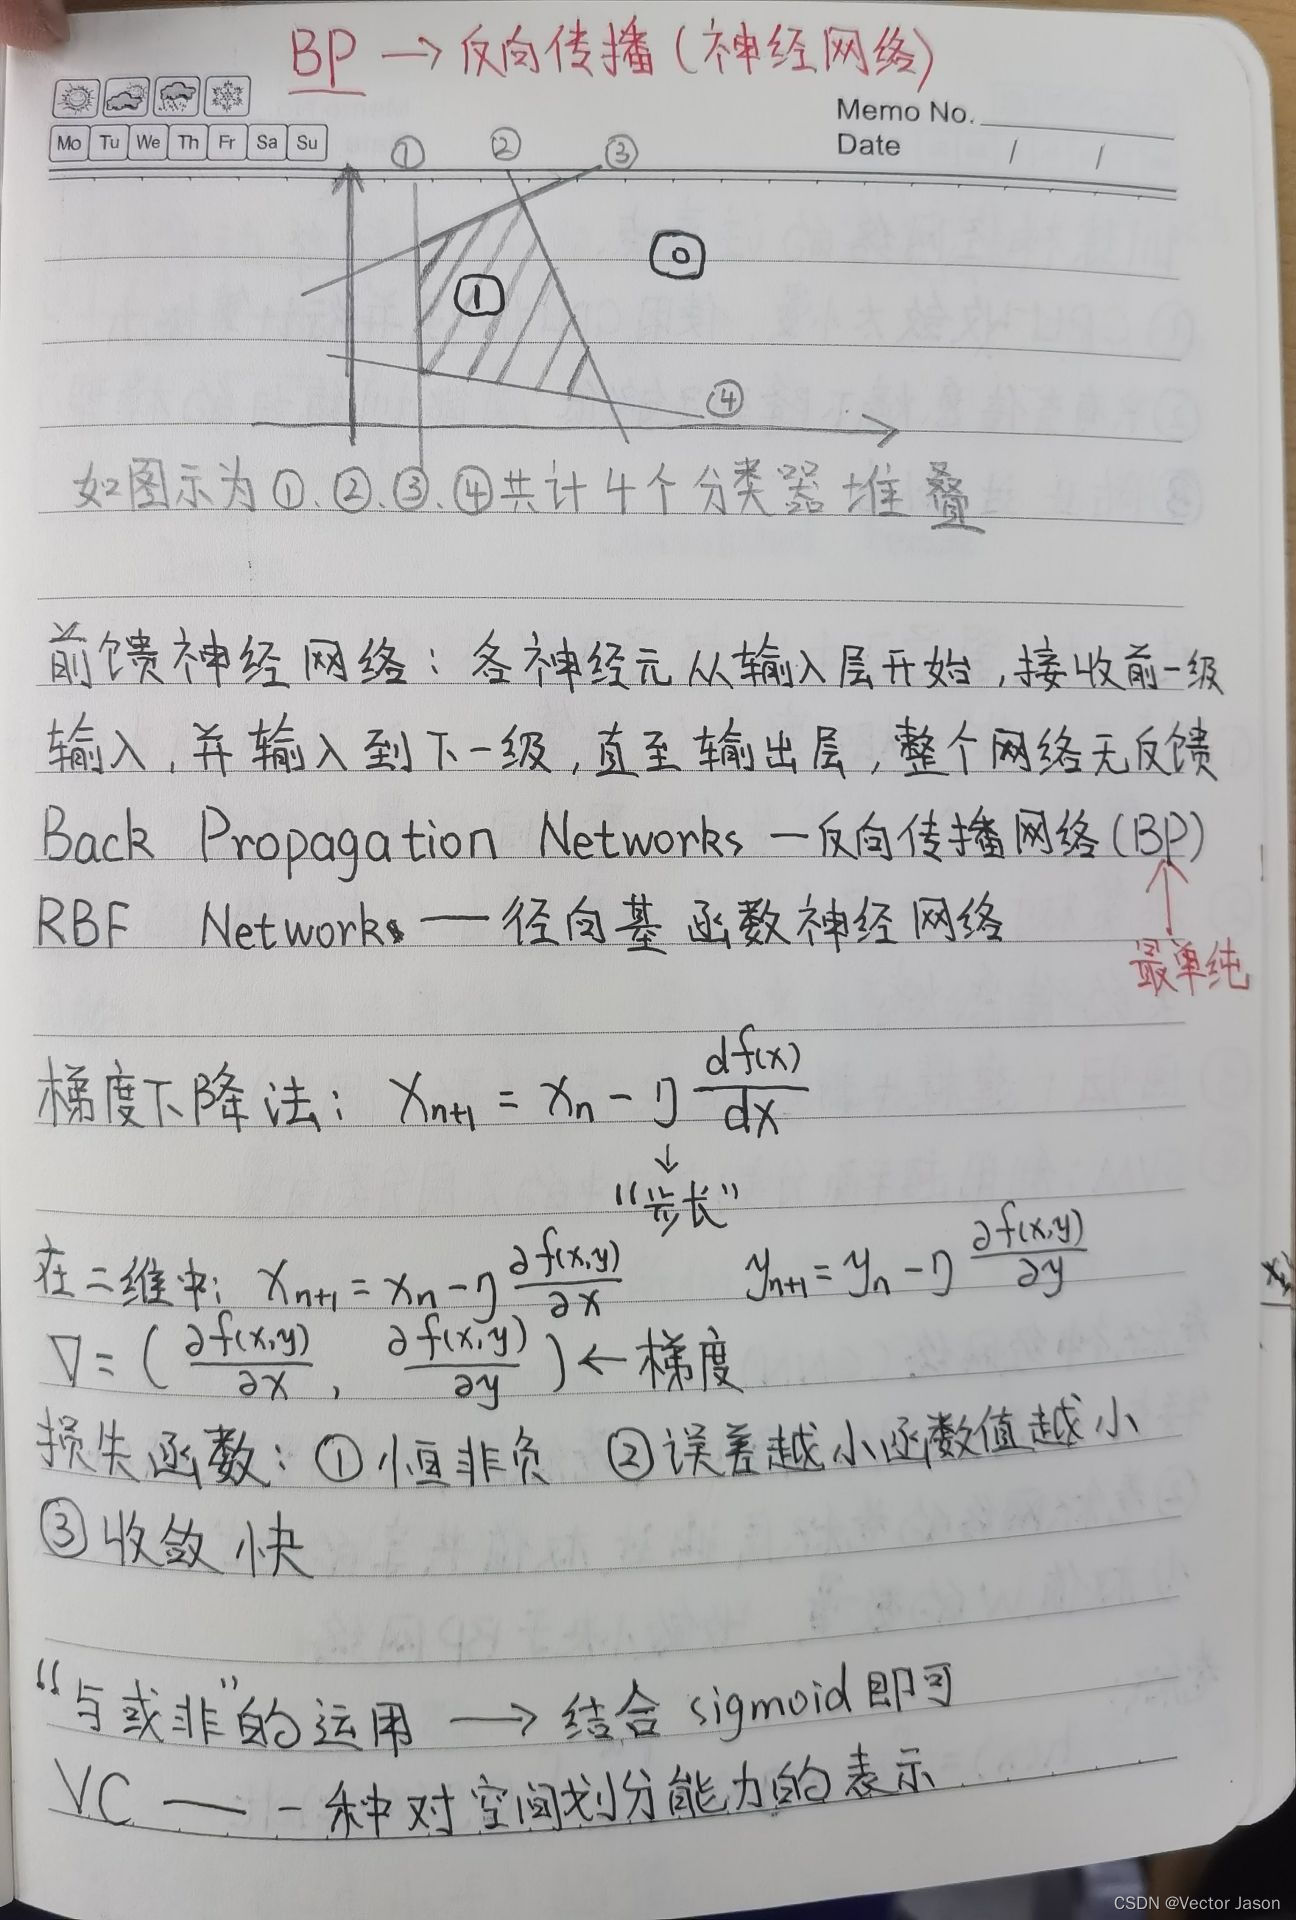 BP → 反向传播(神经网络)
Memo No.
Mo Tu We Th Fr Sa Su
Date / /
① ② ③
0
1
④
如图示为①、②、③、④共计4个分类器堆叠
前馈神经网络:各神经元从输入层开始,接收前一级
输入,并输入到下一级,直至输出层,整个网络无反馈
Back Propagation Networks — 反向传播网络(BP)
RBF Networks — 径向基函数神经网络
最单纯
梯度下降法: x_{n+1} = x_n - η df(x)/dx
↓
“步长”
在二维中: x_{n+1} = x_n - η ∂f(x,y)/∂x y_{n+1} = y_n - η ∂f(x,y)/∂y
∇ = ( ∂f(x,y)/∂x , ∂f(x,y)/∂y ) ← 梯度
损失函数: ① 恒非负 ② 误差越小函数值越小
③ 收敛快
“与或非”的运用 → 结合 sigmoid 即可
VC — 一种对空间划分能力的表示
CSDN @Vector Jason